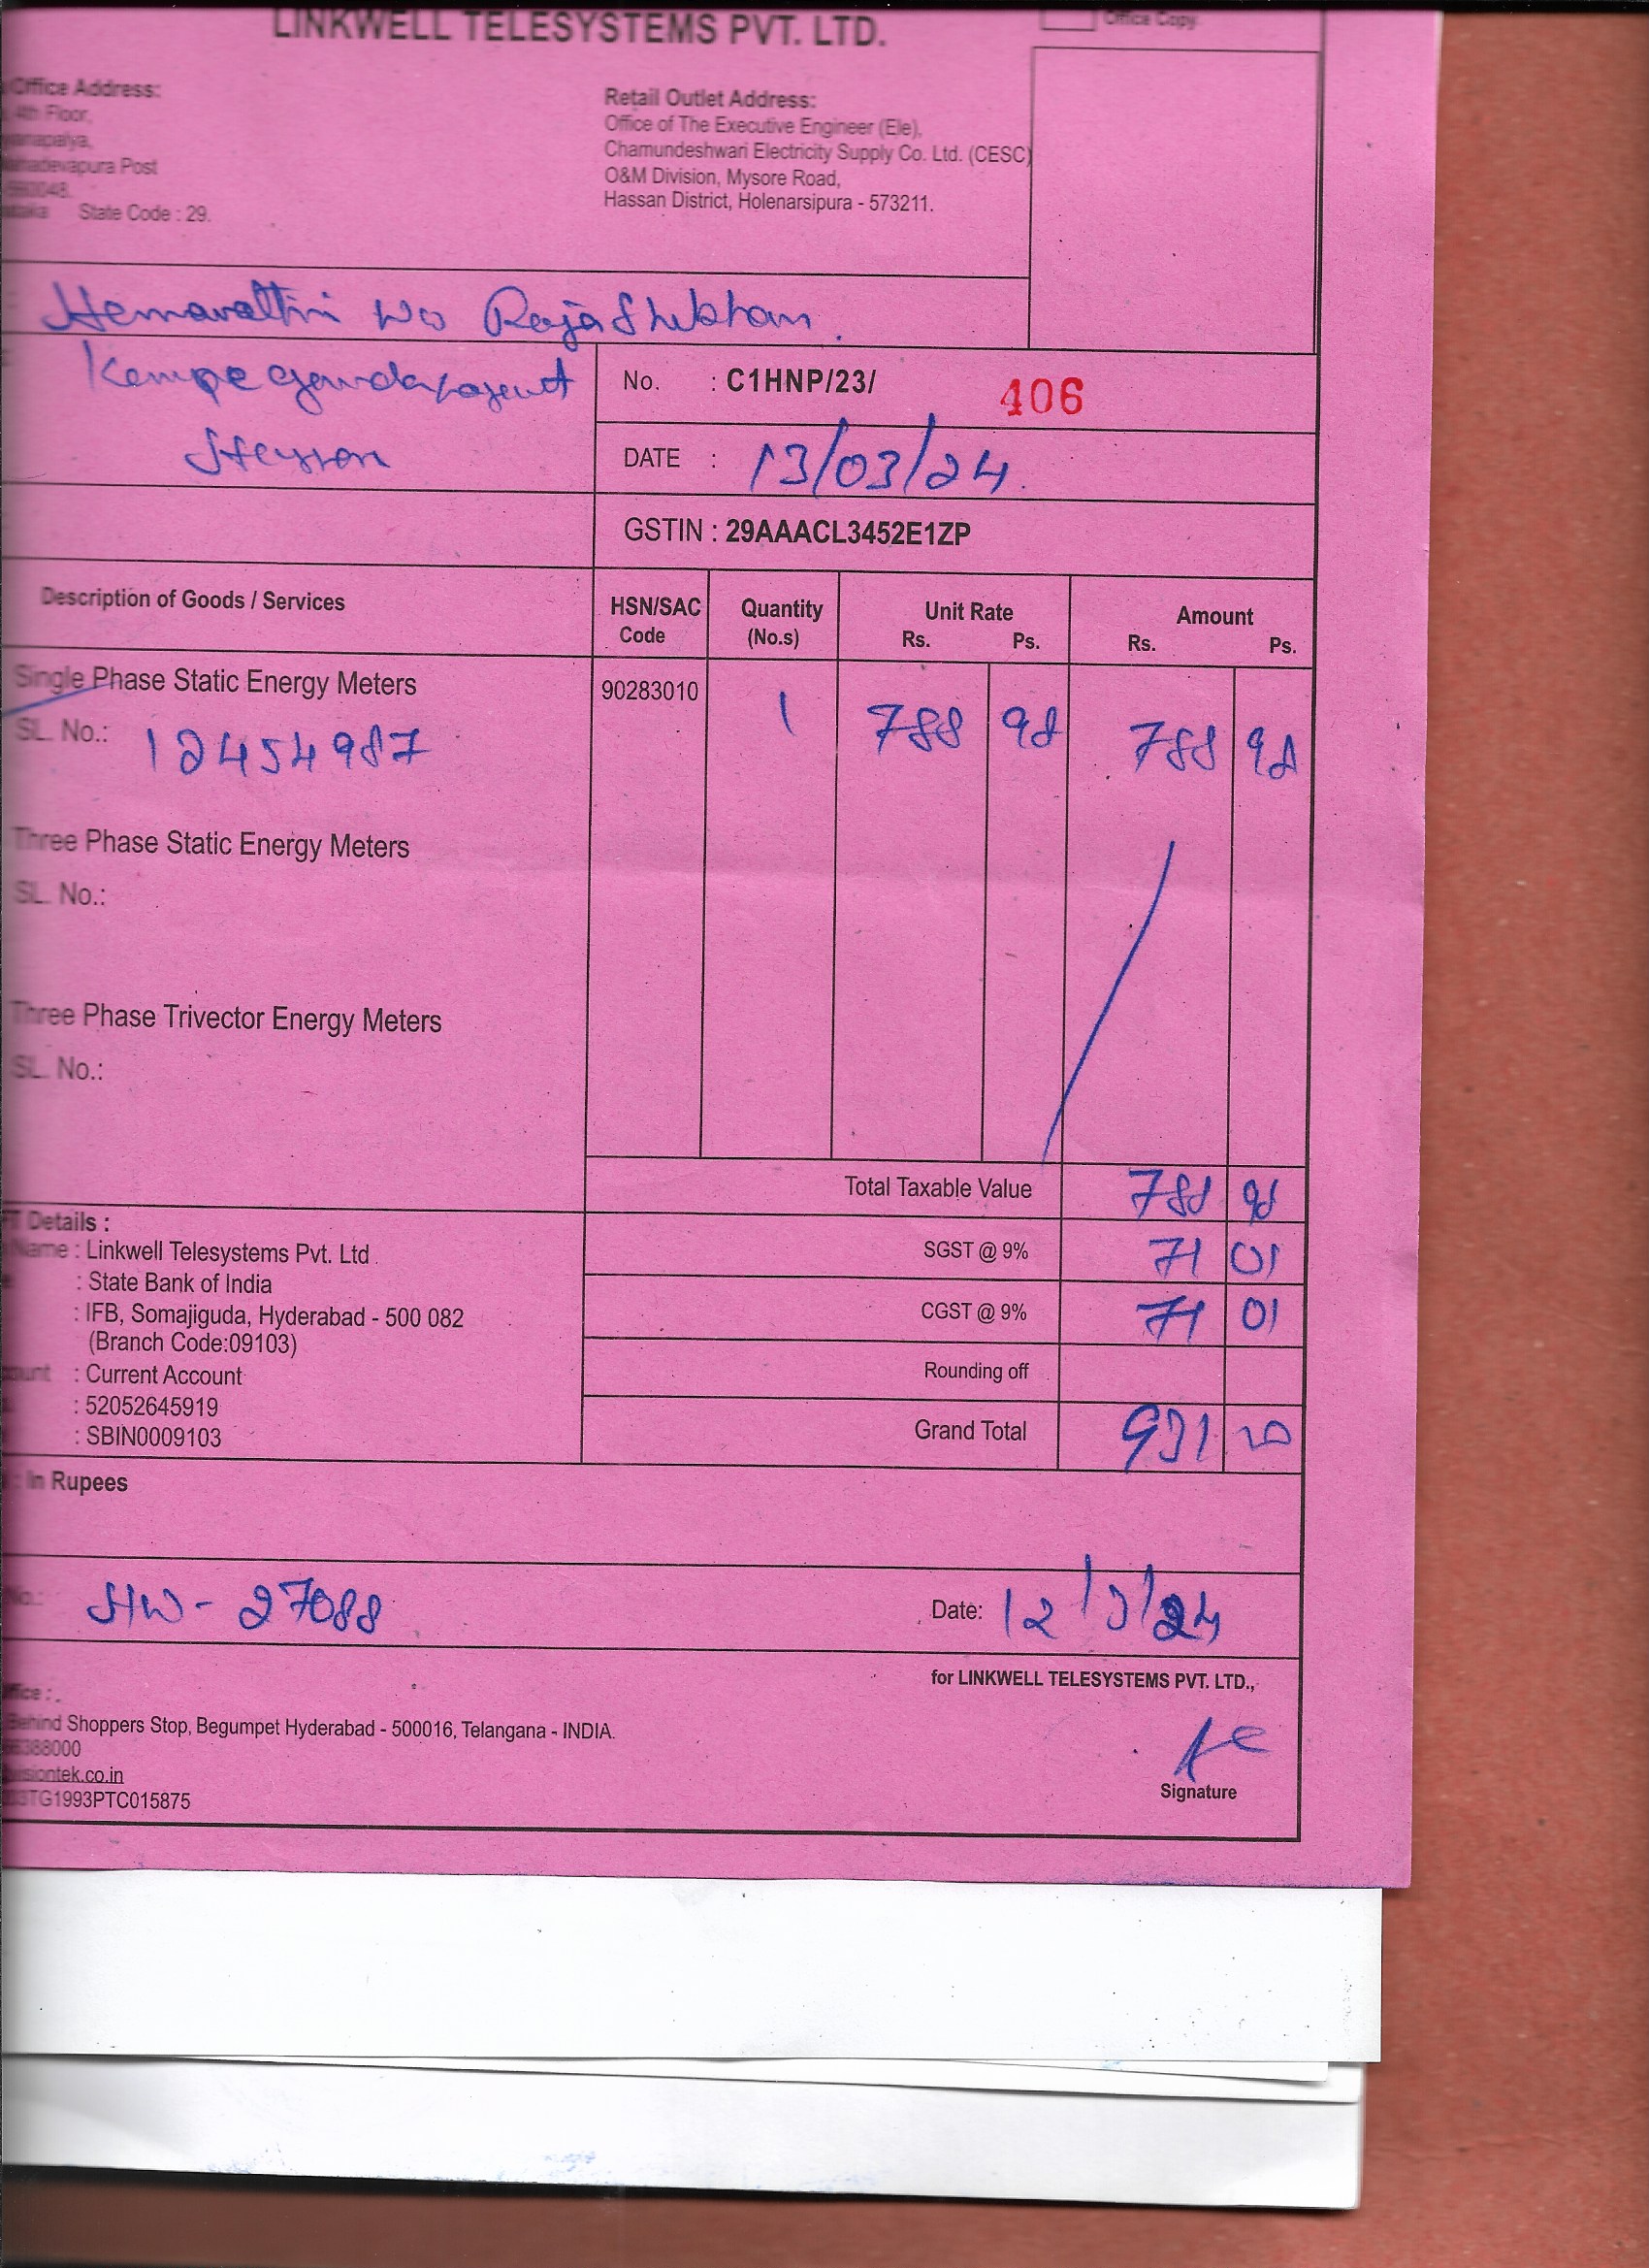 LINKWELL TELESYSTEMS PVT. LTD.
Office Copy
Office Address:
4th Floor,
Mahadevapura Post
560048.
State Code : 29.
Retail Outlet Address:
Office of The Executive Engineer (Ele),
Chamundeshwari Electricity Supply Co. Ltd. (CESC)
O&M Division, Mysore Road,
Hassan District, Holenarsipura - 573211.
W/o
No. : C1HNP/23/ 406
DATE : 13/03/24.
GSTIN : 29AAACL3452E1ZP
Description of Goods / Services HSN/SAC Code Quantity (No.s) Unit Rate Rs. Ps. Amount Rs. Ps.
Single Phase Static Energy Meters 90283010 1 788 98 788 98
SL. No.: 12454987
Three Phase Static Energy Meters
SL. No.:
Three Phase Trivector Energy Meters
SL. No.:
Total Taxable Value 788 98
Details :
Name : Linkwell Telesystems Pvt. Ltd.
SGST @ 9% 71 01
: State Bank of India
: IFB, Somajiguda, Hyderabad - 500 082
CGST @ 9% 71 01
(Branch Code:09103)
: Current Account
Rounding off
: 52052645919
: SBIN0009103
Grand Total 931 20
: In Rupees
No.: HW- 27088
Date: 12/3/24
for LINKWELL TELESYSTEMS PVT. LTD.,
Behind Shoppers Stop, Begumpet Hyderabad - 500016, Telangana - INDIA.
388000
visiontek.co.in
TG1993PTC015875
Signature